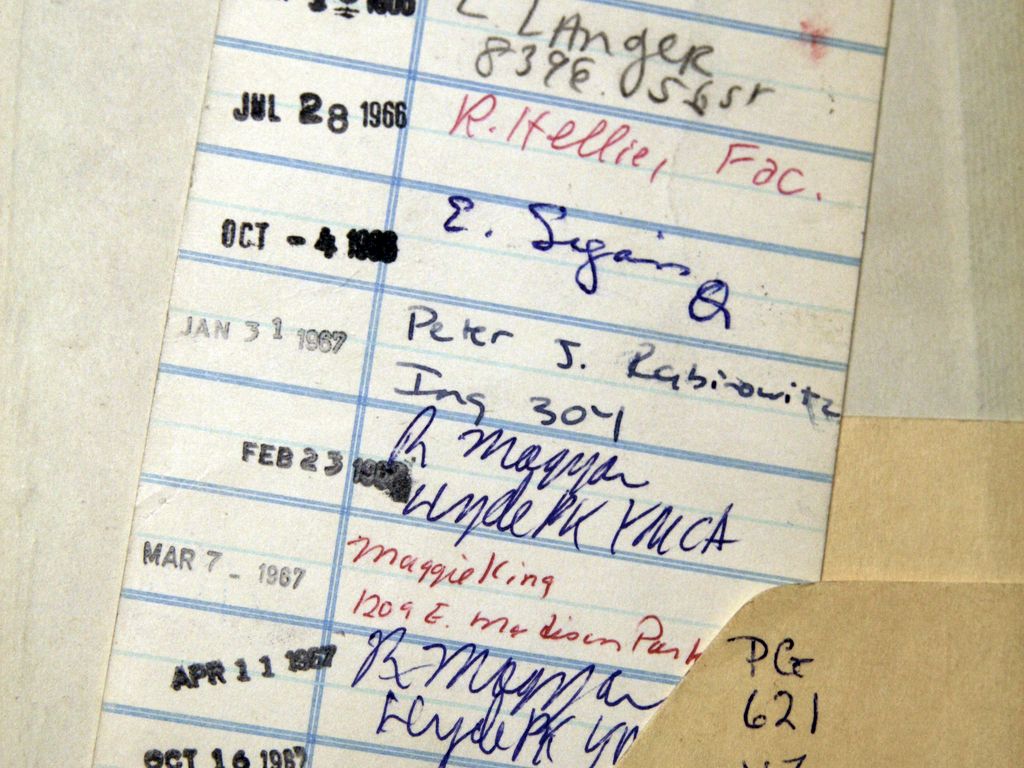 L LAngER
8396. S 56 ST
JUL 28 1966 R. Hellie, Fac.
OCT - 4 1966 E. Segan
Q
JAN 31 1967 Peter J. Rabinowitz
Ing 304
FEB 23 R Magyar
Hyde PK YMCA
MAR 7 - 1967 Maggie King
1209 E. Madison Park
APR 11 1967 R Magyar
Hyde PK YM
OCT 16 1967
PG
621